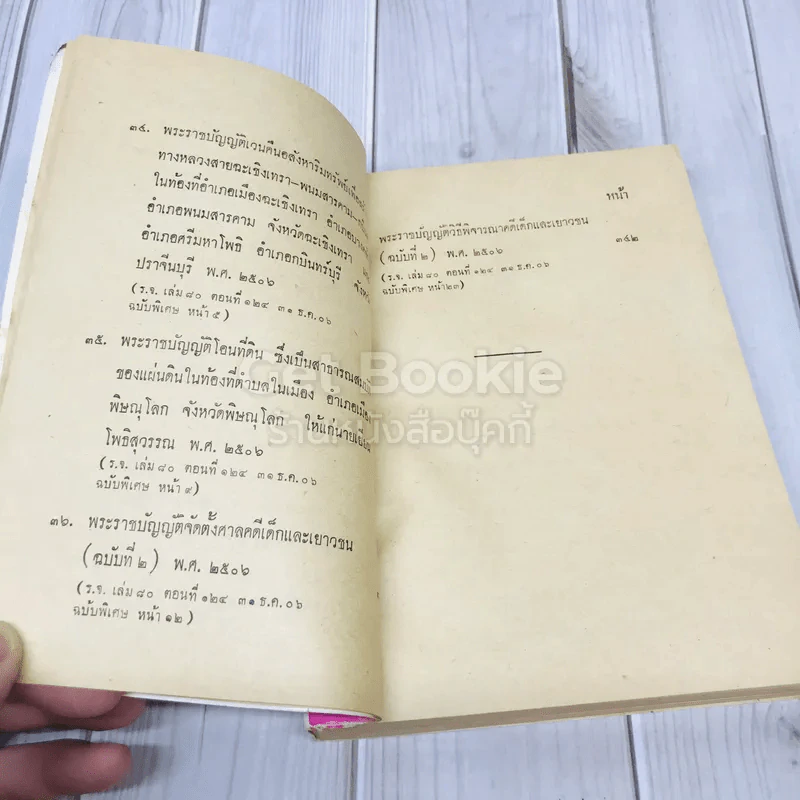 ๓๔. พระราชบัญญัติเวนคืนอสังหาริมทรัพย์เพื่อสร้าง
ทางหลวงสายฉะเชิงเทรา-พนมสารคาม-
ในท้องที่อำเภอเมืองฉะเชิงเทรา อำเภอบางคล้า
อำเภอพนมสารคาม จังหวัดฉะเชิงเทรา และ
อำเภอศรีมหาโพธิ อำเภอกบินทร์บุรี จังหวัด
ปราจีนบุรี พ.ศ. ๒๕๐๖
(ร.จ. เล่ม ๘๐ ตอนที่ ๑๒๔ ๓๑ ธ.ค. ๐๖
ฉบับพิเศษ หน้า ๕)
๓๕. พระราชบัญญัติโอนที่ดิน ซึ่งเป็นสาธารณสมบัติ
ของแผ่นดินในท้องที่ตำบลในเมือง อำเภอเมือง
พิษณุโลก จังหวัดพิษณุโลก ให้แก่นาย
โพธิสุวรรณ พ.ศ. ๒๕๐๖
(ร.จ. เล่ม ๘๐ ตอนที่ ๑๒๔ ๓๑ ธ.ค. ๐๖
ฉบับพิเศษ หน้า ๙)
๓๖. พระราชบัญญัติจัดตั้งศาลคดีเด็กและเยาวชน
(ฉบับที่ ๒) พ.ศ. ๒๕๐๖
(ร.จ. เล่ม ๘๐ ตอนที่ ๑๒๔ ๓๑ ธ.ค. ๐๖
ฉบับพิเศษ หน้า ๑๒)
หน้า
พระราชบัญญัติวิธีพิจารณาคดีเด็กและเยาวชน
(ฉบับที่ ๒) พ.ศ. ๒๕๐๖ ๓๔๒
(ร.จ. เล่ม ๘๐ ตอนที่ ๑๒๔ ๓๑ ธ.ค. ๐๖
ฉบับพิเศษ หน้า ๒๓)
Get Bookie
ร้านหนังสือบุ๊คกี้